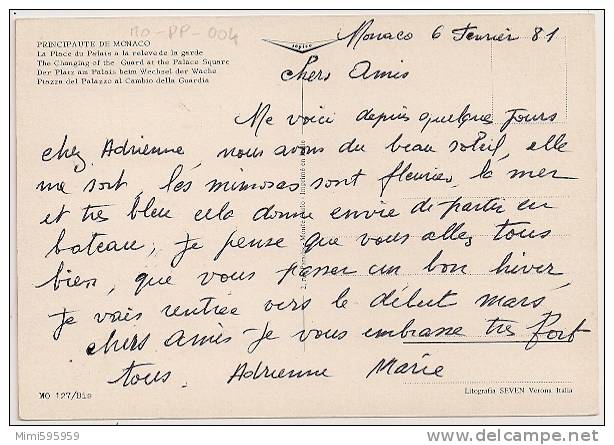 MO-PP-004
PRINCIPAUTE DE MONACO
La Place du Palais a la releve de la garde
The Changing of the Guard at the Palace Square
Der Platz am Palais beim Wechsel der Wache
Piazza del Palazzo al Cambio della Guardia
Monaco 6 Fevrier 81
Chers Amis
Me voici depuis quelques jours
chez Adrienne, nous avons du beau soleil, elle
me sort, les mimosas sont fleuries, la mer
et très bleu cela donne envie de partir en
bateau, je pense que vous allez tous
bien, que vous passer un bon hiver
je vais rentrée vers le début mars,
chers amis je vous embrasse très fort
tous. Adrienne Marie
MO 127/Bis
Litografia SEVEN Verona Italia
Mimi595959
delcampe.net